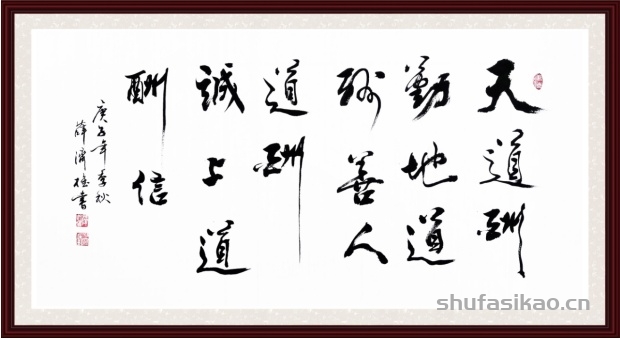 天道酬
勤地道
酬善人
道酬
誠商道
酬信
庚子年季秋
薛濟書
shufasikao.cn